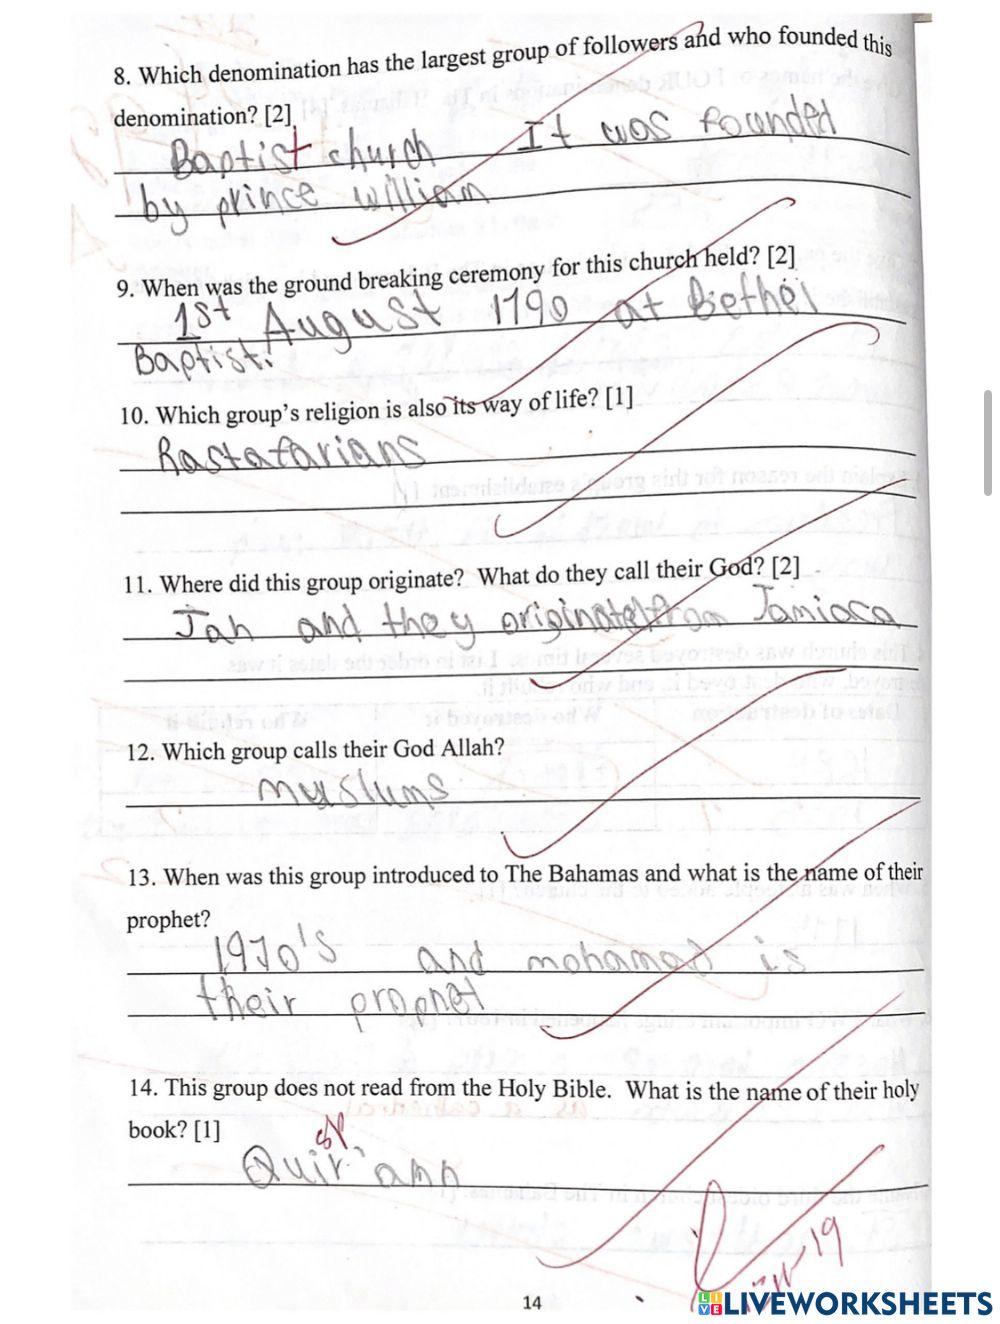 8. Which denomination has the largest group of followers and who founded this
denomination? [2]
Baptist church It was founded
by prince william
9. When was the ground breaking ceremony for this church held? [2]
1st August 1790 at Bethel
Baptist.
10. Which group's religion is also its way of life? [1]
Rastafarians
11. Where did this group originate? What do they call their God? [2]
Jah and they originated from Jamiaca
12. Which group calls their God Allah?
muslums
13. When was this group introduced to The Bahamas and what is the name of their
prophet?
1970's and mohamad is
their prophet
14. This group does not read from the Holy Bible. What is the name of their holy
book? [1]
sp
Quir'ann
14
LIVEWORKSHEETS